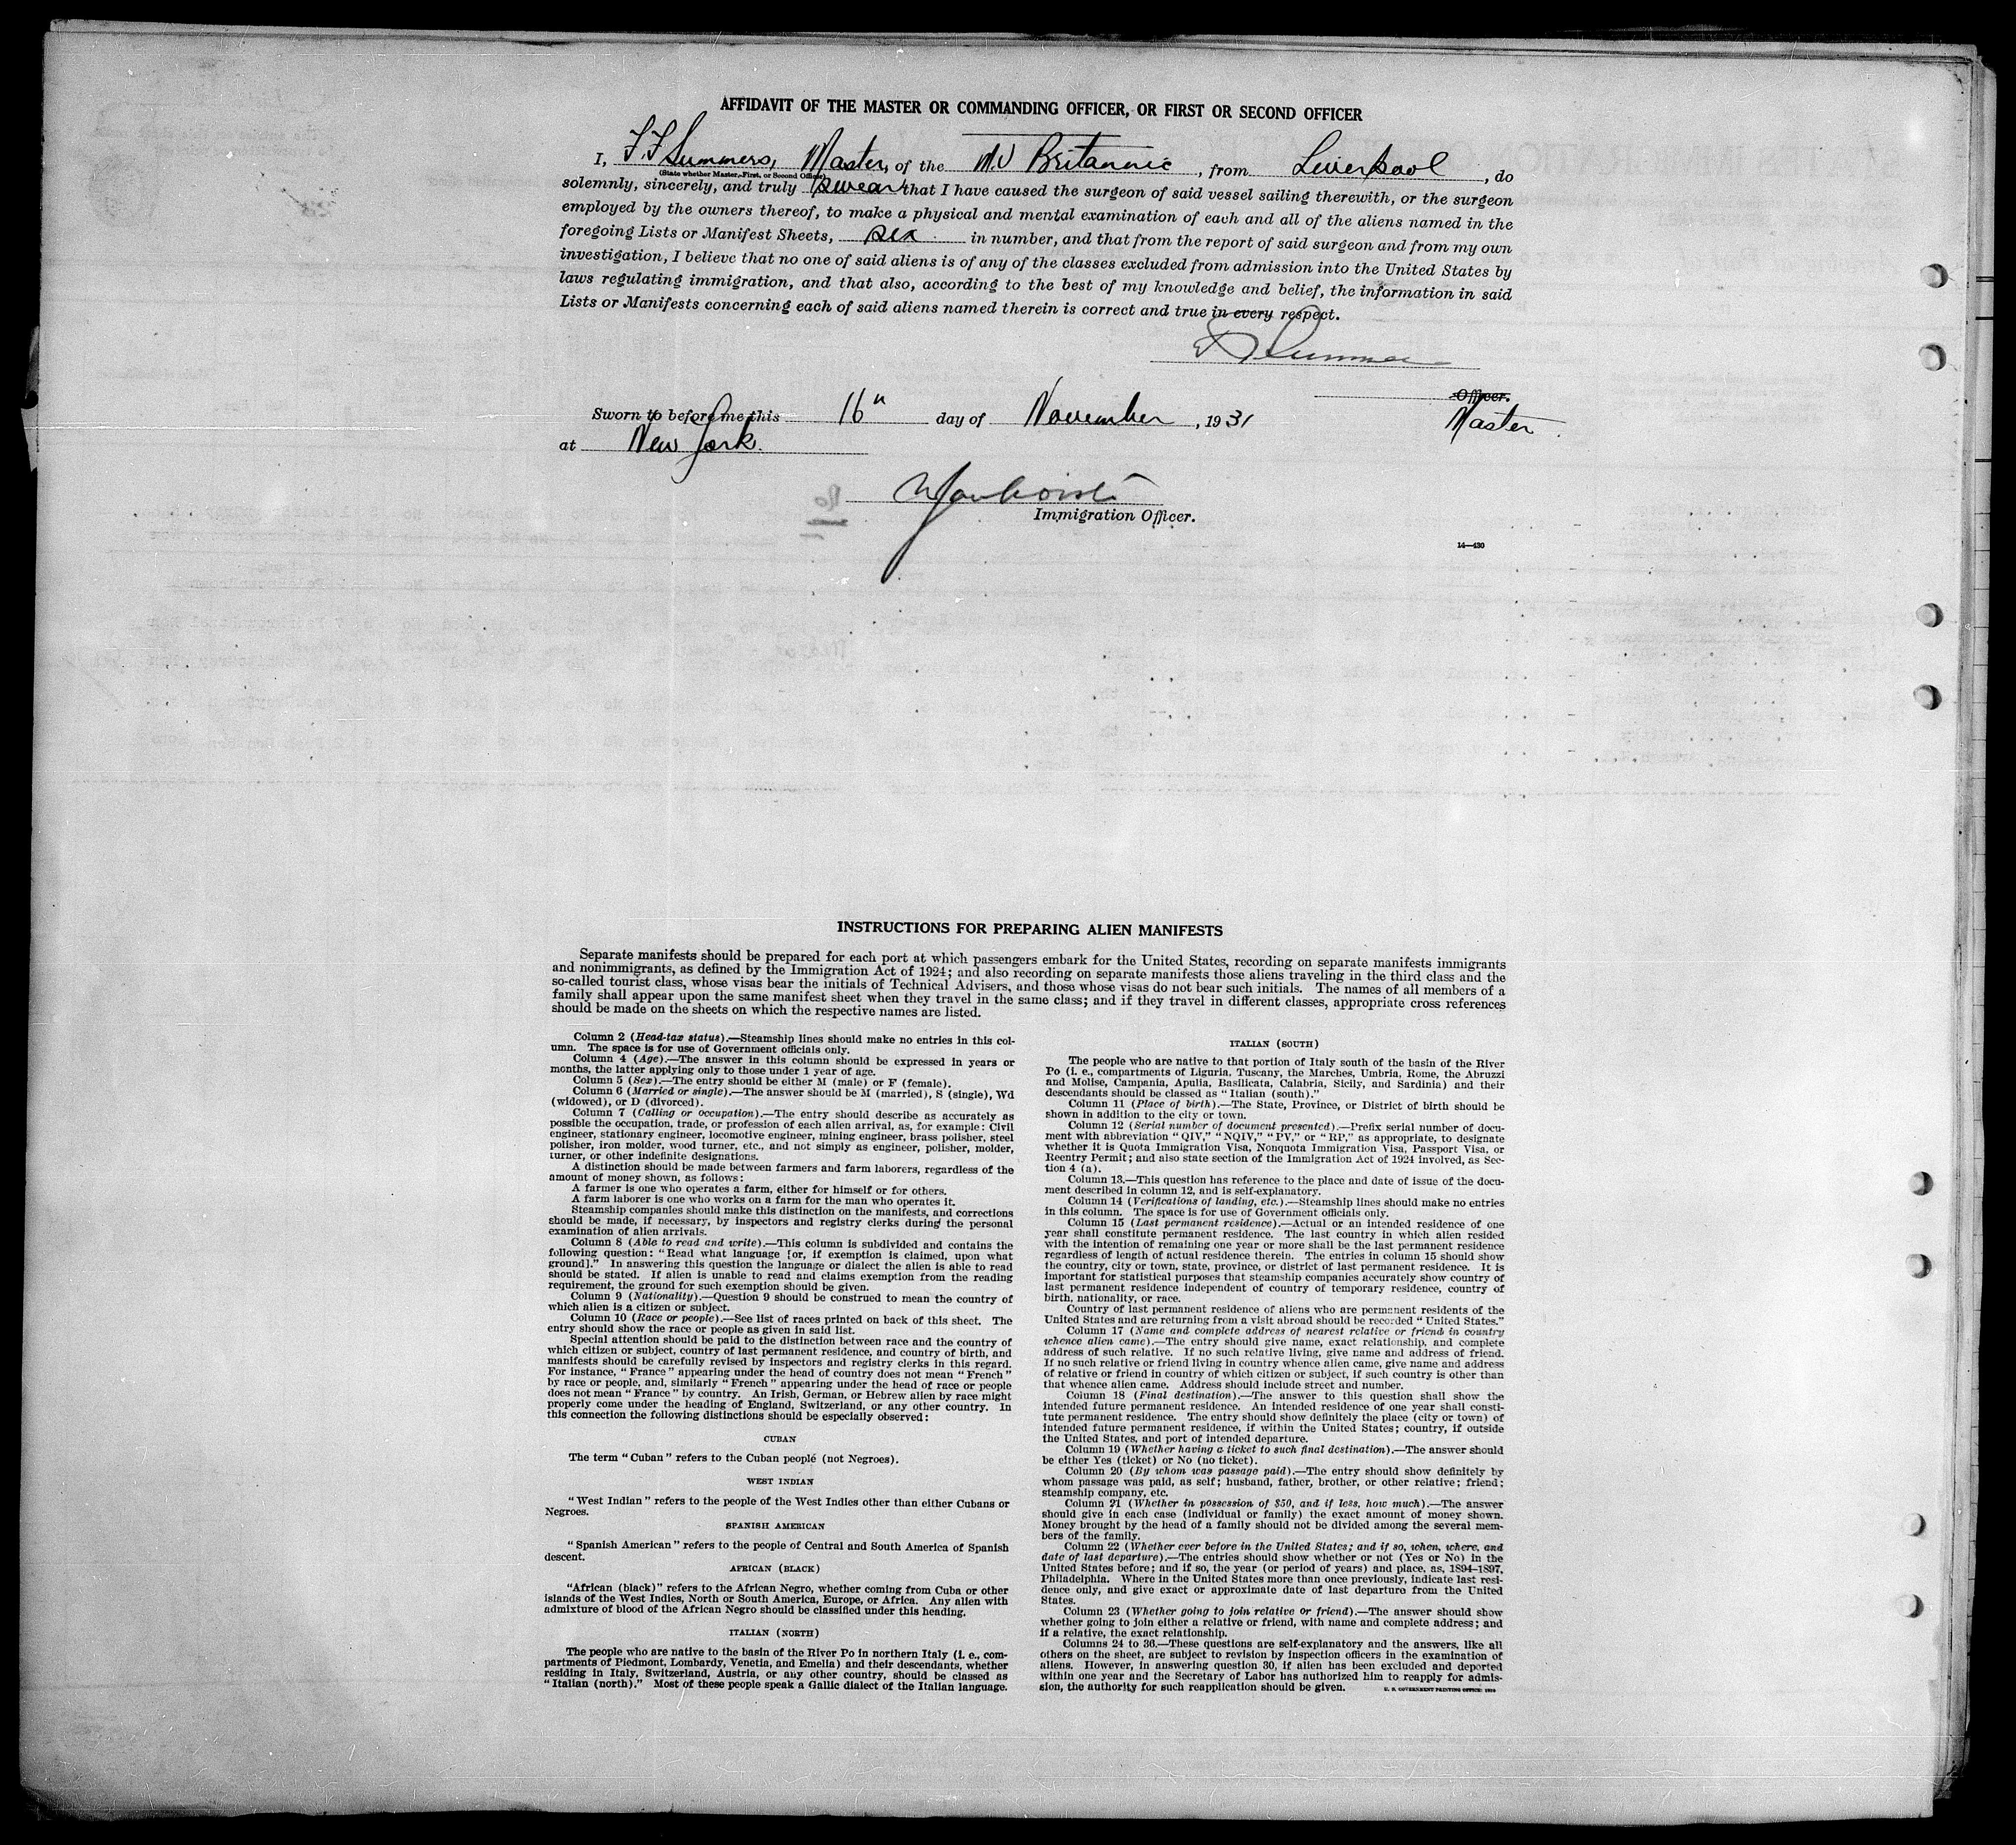 AFFIDAVIT OF THE MASTER OR COMMANDING OFFICER, OR FIRST OR SECOND OFFICER
I, F. F. Summers, Master, of the M.V Britannic, from Liverpool, do
(State whether Master, First, or Second Officer)
solemnly, sincerely, and truly swear that I have caused the surgeon of said vessel sailing therewith, or the surgeon
employed by the owners thereof, to make a physical and mental examination of each and all of the aliens named in the
foregoing Lists or Manifest Sheets, six in number, and that from the report of said surgeon and from my own
investigation, I believe that no one of said aliens is of any of the classes excluded from admission into the United States by
laws regulating immigration, and that also, according to the best of my knowledge and belief, the information in said
Lists or Manifests concerning each of said aliens named therein is correct and true in every respect.
F F Summers
Officer.
Master
Sworn to before me this 16" day of November, 1931
at New York.
Immigration Officer.
14—430
INSTRUCTIONS FOR PREPARING ALIEN MANIFESTS
Separate manifests should be prepared for each port at which passengers embark for the United States, recording on separate manifests immigrants
and nonimmigrants, as defined by the Immigration Act of 1924; and also recording on separate manifests those aliens traveling in the third class and the
so-called tourist class, whose visas bear the initials of Technical Advisers, and those whose visas do not bear such initials. The names of all members of a
family shall appear upon the same manifest sheet when they travel in the same class; and if they travel in different classes, appropriate cross references
should be made on the sheets on which the respective names are listed.
Column 2 (Head-tax status).—Steamship lines should make no entries in this col-
umn. The space is for use of Government officials only.
Column 4 (Age).—The answer in this column should be expressed in years or
months, the latter applying only to those under 1 year of age.
Column 5 (Sex).—The entry should be either M (male) or F (female).
Column 6 (Married or single).—The answer should be M (married), S (single), Wd
(widowed), or D (divorced).
Column 7 (Calling or occupation).—The entry should describe as accurately as
possible the occupation, trade, or profession of each alien arrival, as, for example: Civil
engineer, stationary engineer, locomotive engineer, mining engineer, brass polisher, steel
polisher, iron molder, wood turner, etc., and not simply as engineer, polisher, molder,
turner, or other indefinite designations.
A distinction should be made between farmers and farm laborers, regardless of the
amount of money shown, as follows:
A farmer is one who operates a farm, either for himself or for others.
A farm laborer is one who works on a farm for the man who operates it.
Steamship companies should make this distinction on the manifests, and corrections
should be made, if necessary, by inspectors and registry clerks during the personal
examination of alien arrivals.
Column 8 (Able to read and write).—This column is subdivided and contains the
following question: "Read what language [or, if exemption is claimed, upon what
ground]." In answering this question the language or dialect the alien is able to read
should be stated. If alien is unable to read and claims exemption from the reading
requirement, the ground for such exemption should be given.
Column 9 (Nationality).—Question 9 should be construed to mean the country of
which alien is a citizen or subject.
Column 10 (Race or people).—See list of races printed on back of this sheet. The
entry should show the race or people as given in said list.
Special attention should be paid to the distinction between race and the country of
which citizen or subject, country of last permanent residence, and country of birth, and
manifests should be carefully revised by inspectors and registry clerks in this regard.
For instance, "France" appearing under the head of country does not mean "French"
by race or people, and, similarly "French" appearing under the head of race or people
does not mean "France" by country. An Irish, German, or Hebrew alien by race might
properly come under the heading of England, Switzerland, or any other country. In
this connection the following distinctions should be especially observed:
CUBAN
The term "Cuban" refers to the Cuban people (not Negroes).
WEST INDIAN
"West Indian" refers to the people of the West Indies other than either Cubans or
Negroes.
SPANISH AMERICAN
"Spanish American" refers to the people of Central and South America of Spanish
descent.
AFRICAN (BLACK)
"African (black)" refers to the African Negro, whether coming from Cuba or other
islands of the West Indies, North or South America, Europe, or Africa. Any alien with
admixture of blood of the African Negro should be classified under this heading.
ITALIAN (NORTH)
The people who are native to the basin of the River Po in northern Italy (i. e., com-
partments of Piedmont, Lombardy, Venetia, and Emelia) and their descendants, whether
residing in Italy, Switzerland, Austria, or any other country, should be classed as
"Italian (north)." Most of these people speak a Gallic dialect of the Italian language.
ITALIAN (SOUTH)
The people who are native to that portion of Italy south of the basin of the River
Po (i. e., compartments of Liguria, Tuscany, the Marches, Umbria, Rome, the Abruzzi
and Molise, Campania, Apulia, Basilicata, Calabria, Sicily, and Sardinia) and their
descendants should be classed as "Italian (south)."
Column 11 (Place of birth).—The State, Province, or District of birth should be
shown in addition to the city or town.
Column 12 (Serial number of document presented).—Prefix serial number of docu-
ment with abbreviation "QIV," "NQIV," "PV," or "RP," as appropriate, to designate
whether it is Quota Immigration Visa, Nonquota Immigration Visa, Passport Visa, or
Reentry Permit; and also state section of the Immigration Act of 1924 involved, as Sec-
tion 4 (a).
Column 13.—This question has reference to the place and date of issue of the docu-
ment described in column 12, and is self-explanatory.
Column 14 (Verifications of landing, etc.).—Steamship lines should make no entries
in this column. The space is for use of Government officials only.
Column 15 (Last permanent residence).—Actual or an intended residence of one
year shall constitute permanent residence. The last country in which alien resided
with the intention of remaining one year or more shall be the last permanent residence
regardless of length of actual residence therein. The entries in column 15 should show
the country, city or town, state, province, or district of last permanent residence. It is
important for statistical purposes that steamship companies accurately show country of
last permanent residence independent of country of temporary residence, country of
birth, nationality, or race.
Country of last permanent residence of aliens who are permanent residents of the
United States and are returning from a visit abroad should be recorded "United States."
Column 17 (Name and complete address of nearest relative or friend in country
whence alien came).—The entry should give name, exact relationship, and complete
address of such relative. If no such relative living, give name and address of friend.
If no such relative or friend living in country whence alien came, give name and address
of relative or friend in country of which citizen or subject, if such country is other than
that whence alien came. Address should include street and number.
Column 18 (Final destination).—The answer to this question shall show the
intended future permanent residence. An intended residence of one year shall consti-
tute permanent residence. The entry should show definitely the place (city or town) of
intended future permanent residence, if within the United States; country, if outside
the United States, and port of intended departure.
Column 19 (Whether having a ticket to such final destination).—The answer should
be either Yes (ticket) or No (no ticket).
Column 20 (By whom was passage paid).—The entry should show definitely by
whom passage was paid, as self; husband, father, brother, or other relative; friend;
steamship company, etc.
Column 21 (Whether in possession of $50, and if less, how much).—The answer
should give in each case (individual or family) the exact amount of money shown.
Money brought by the head of a family should not be divided among the several mem-
bers of the family.
Column 22 (Whether ever before in the United States; and if so, when, where, and
date of last departure).—The entries should show whether or not (Yes or No) in the
United States before; and if so, the year (or period of years) and place, as, 1894–1897,
Philadelphia. Where in the United States more than once previously, indicate last resi-
dence only, and give exact or approximate date of last departure from the United
States.
Column 23 (Whether going to join relative or friend).—The answer should show
whether going to join either a relative or friend, with name and complete address; and
if a relative, the exact relationship.
Columns 24 to 36.—These questions are self-explanatory and the answers, like all
others on the sheet, are subject to revision by inspection officers in the examination of
aliens. However, in answering question 30, if alien has been excluded and deported
within one year and the Secretary of Labor has authorized him to reapply for admis-
sion, the authority for such reapplication should be given.
U. S. GOVERNMENT PRINTING OFFICE